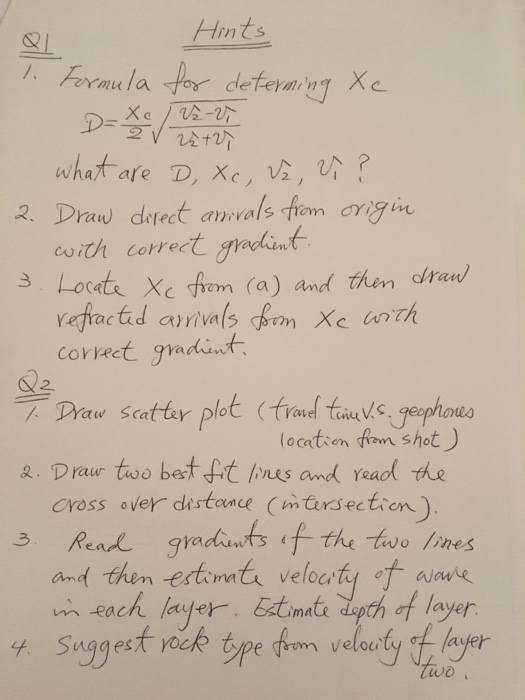 Hints
Q1
1. Formula for determing Xc
D = Xc/2 √((v2-v1)/(v2+v1))
what are D, Xc, v2, v1 ?
2. Draw direct arrivals from origin
with correct gradient.
3. Locate Xc from (a) and then draw
refracted arrivals from Xc with
correct gradient.
Q2
1. Draw scatter plot (travel time v.s. geophones
location from shot)
2. Draw two best fit lines and read the
cross over distance (intersection).
3. Read gradients of the two lines
and then estimate velocity of wave
in each layer. Estimate depth of layer.
4. Suggest rock type from velocity of layer
two.